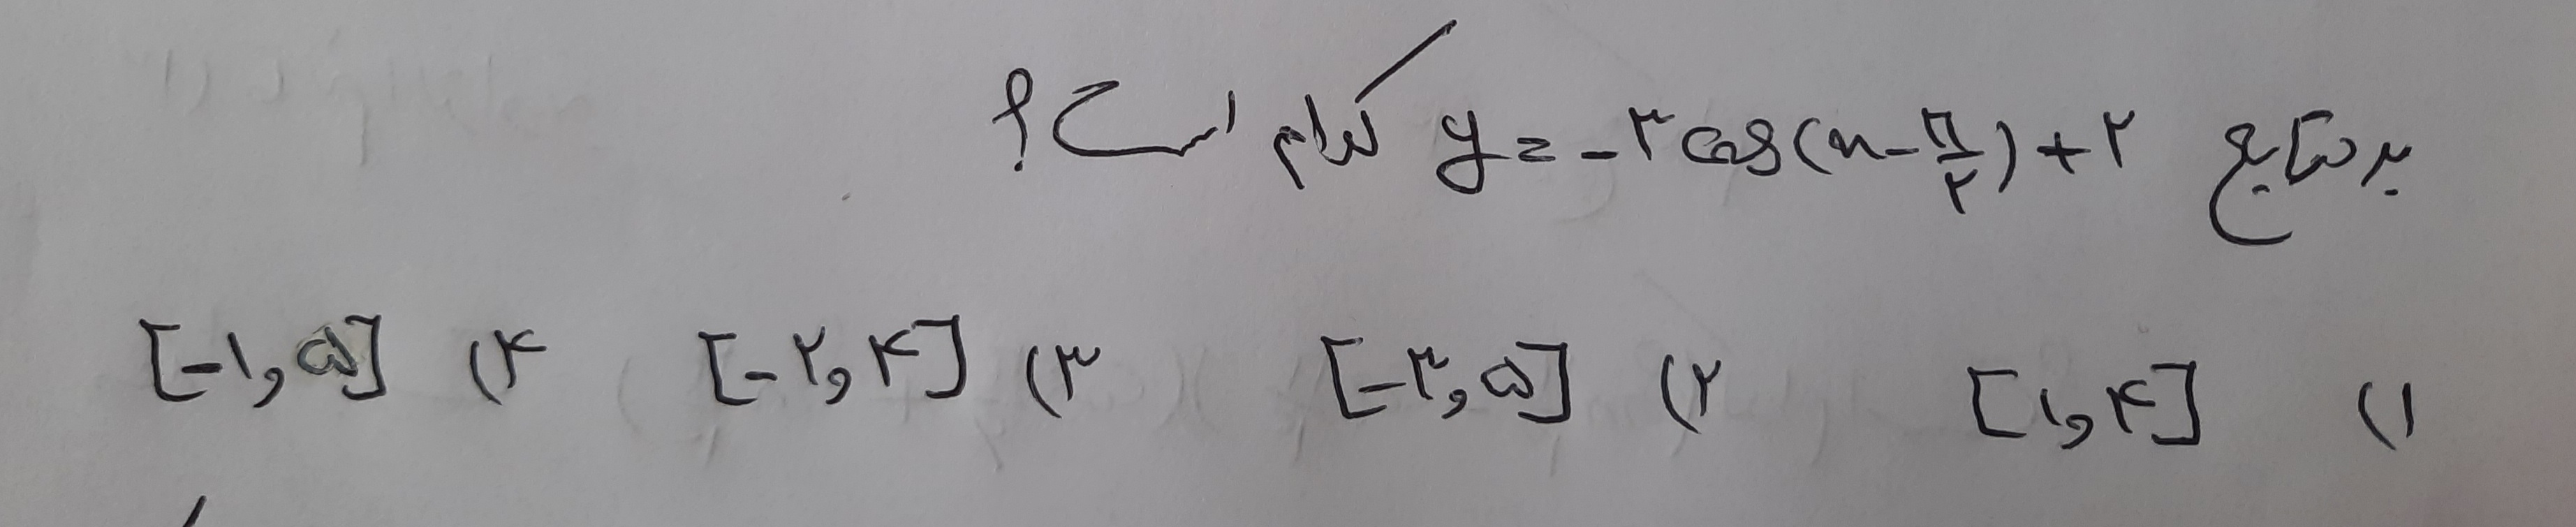 برد تابع y = -۳ cos(x - π/۲) + ۲ کدام است؟
۱) [۱, ۴] ۲) [-۳, ۵] ۳) [-۲, ۴] ۴) [-۱, ۵]